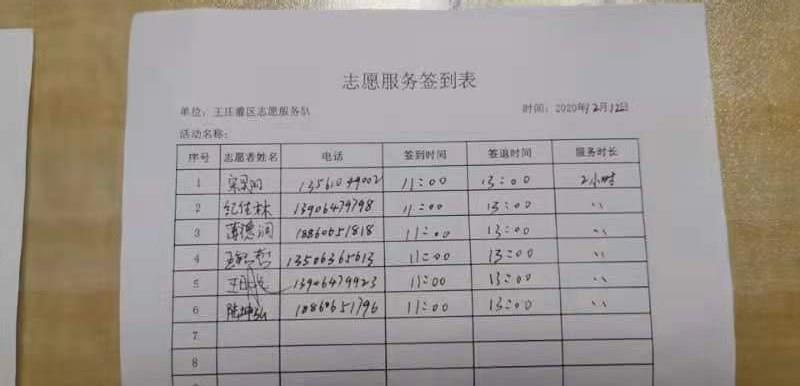 志愿服务签到表
单位：王庄灌区志愿服务队 时间：2020年2月12日
活动名称：
序号 志愿者姓名 电话 签到时间 签退时间 服务时长
1 11:00 13:00 2小时
2 纪佳林 13906479798 11:00 13:00 〃
3 薄德润 18860651818 11:00 13:00 〃
4 13506365613 11:00 13:00 〃
5 13906479923 11:00 13:00 〃
6 陈坤弘 18860651796 11:00 13:00 〃
7
8